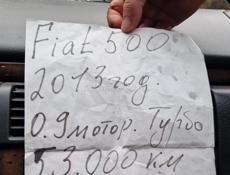 Fiat 500
2013 год.
0.9 мотор. Турбо
53.000 км